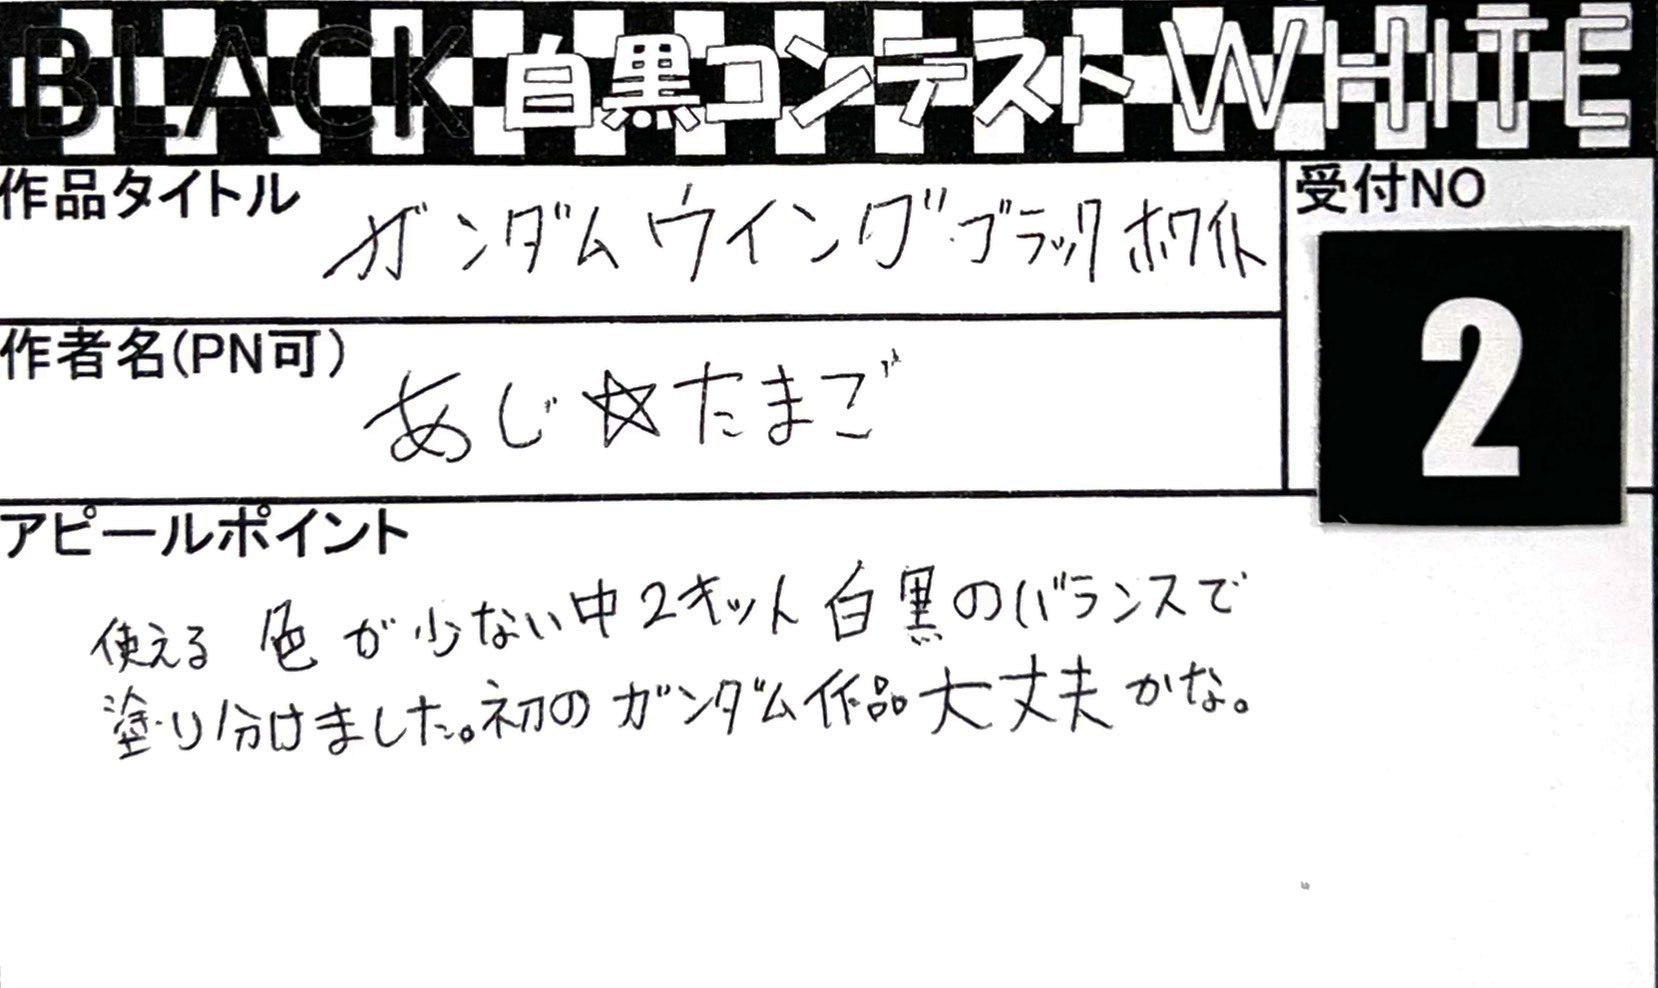 BLACK 白黒コンテスト WHITE
作品タイトル
ガンダムウイングブラックホワイト
受付NO
2
作者名(PN可)
あじ☆たまご
アピールポイント
使える色が少ない中2キット白黒のバランスで
塗り分けました。初のガンダム作品大丈夫かな。